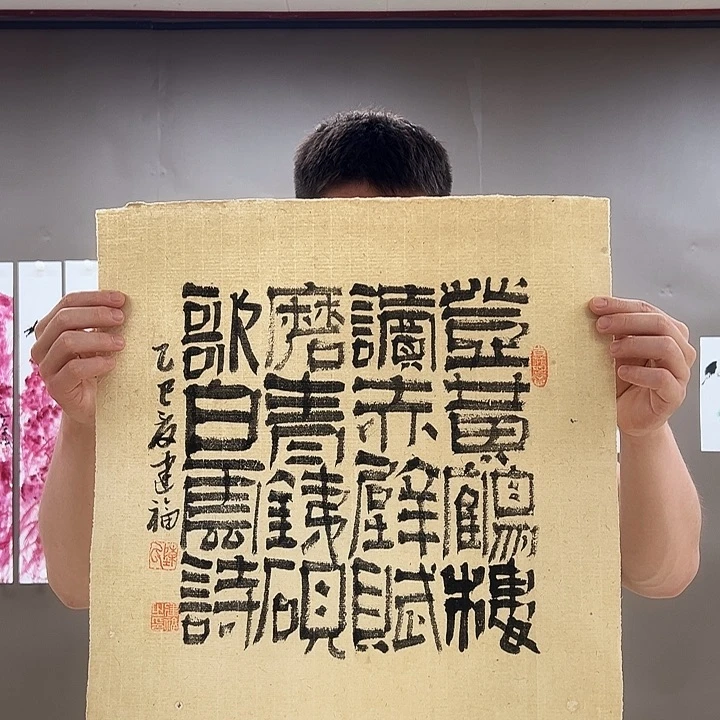 登黃鶴樓
讀赤壁賦
磨青銕硯
歌白雲詩
乙巳夏建福